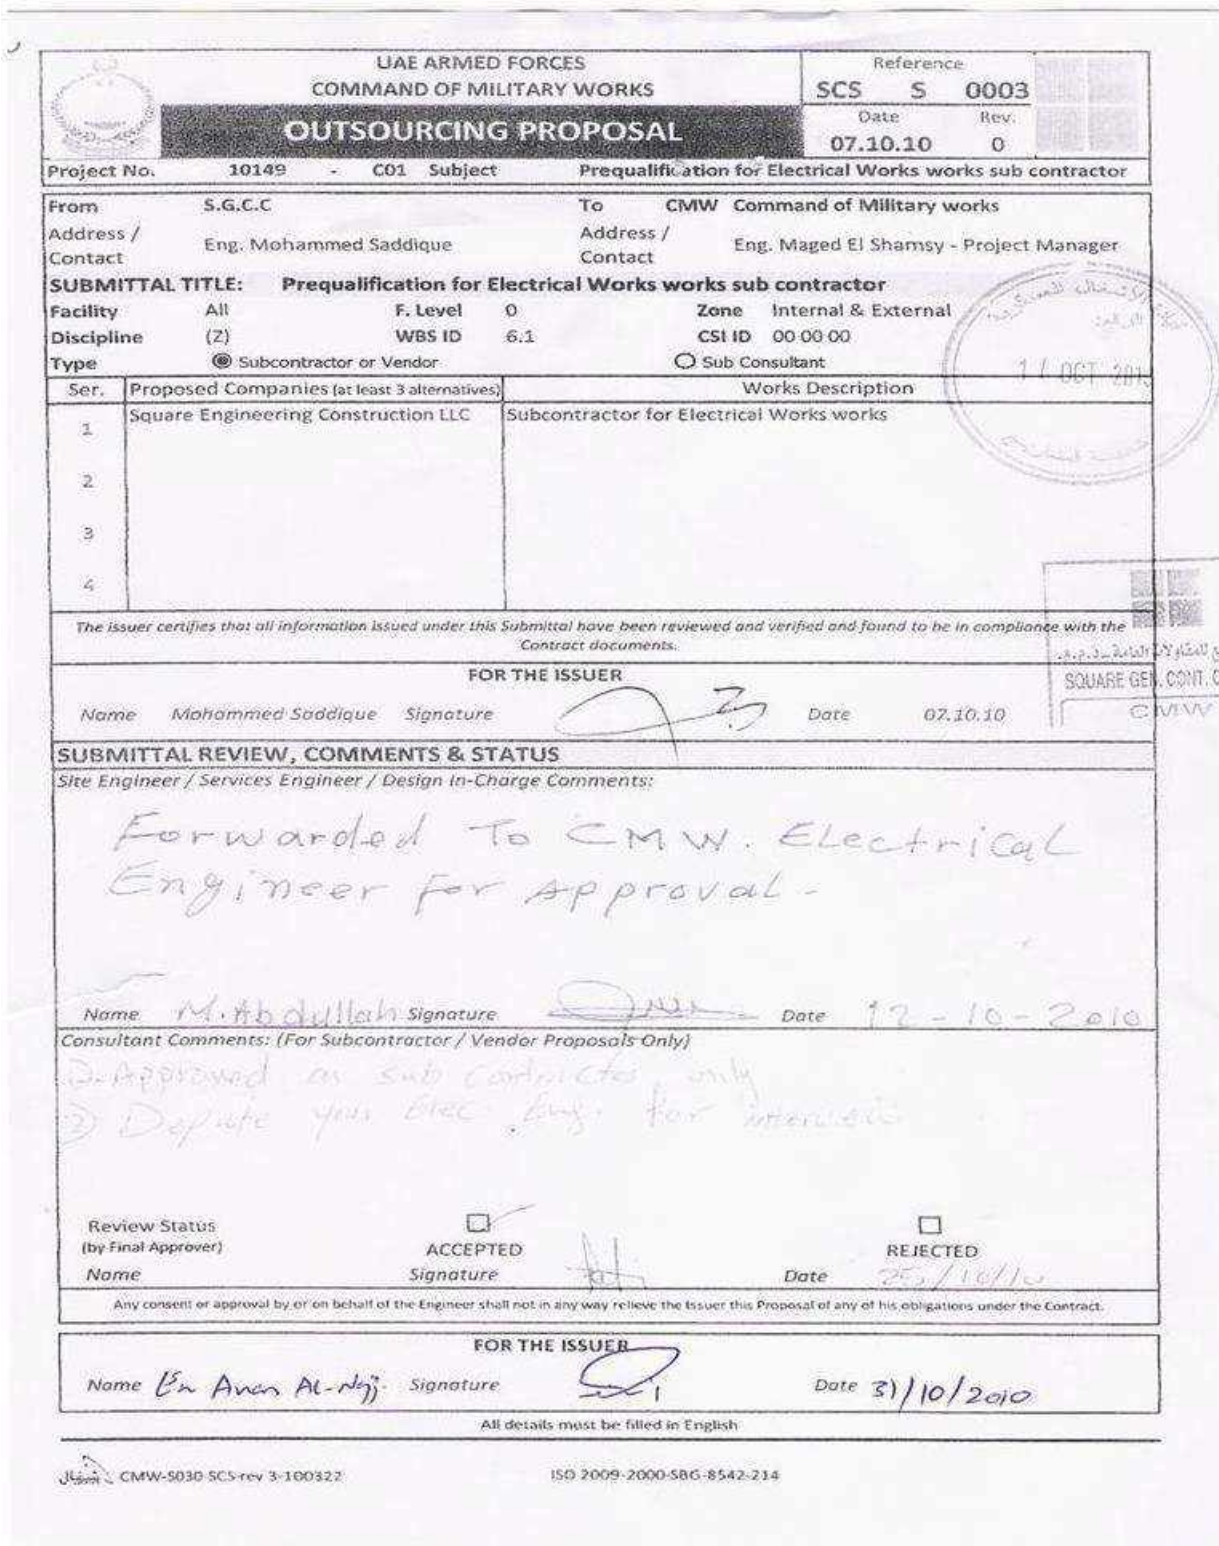 UAE ARMED FORCES
COMMAND OF MILITARY WORKS
OUTSOURCING PROPOSAL
Reference
SCS S 0003
Date Rev.
07.10.10 0
Project No. 10149 - C01 Subject Prequalification for Electrical Works works sub contractor
From S.G.C.C To CMW Command of Military works
Address / Contact Eng. Mohammed Saddique Address / Contact Eng. Maged El Shamsy - Project Manager
SUBMITTAL TITLE: Prequalification for Electrical Works works sub contractor
Facility All F. Level 0 Zone Internal & External
Discipline (Z) WBS ID 6.1 CSI ID 00 00 00
Type Subcontractor or Vendor Sub Consultant
OCT
Ser. Proposed Companies (at least 3 alternatives) Works Description
1 Square Engineering Construction LLC Subcontractor for Electrical Works works
2
3
4
The issuer certifies that all information issued under this Submittal have been reviewed and verified and found to be in compliance with the
Contract documents.
SQUARE GEN. CONT. C
CMW
FOR THE ISSUER
Name Mohammed Saddique Signature Date 07.10.10
SUBMITTAL REVIEW, COMMENTS & STATUS
Site Engineer / Services Engineer / Design In-Charge Comments:
Forwarded To CMW. Electrical
Engineer For Approval -
Name M. Abdullah Signature Date 12-10-2010
Consultant Comments: (For Subcontractor / Vendor Proposals Only)
Approved as sub contractor only
2) Depute your Elec. Eng. for interview
Review Status
(by Final Approver) ACCEPTED REJECTED
Name Signature Date 25/10/10
Any consent or approval by or on behalf of the Engineer shall not in any way relieve the Issuer this Proposal of any of his obligations under the Contract.
FOR THE ISSUER
Name Signature Date 31/10/2010
All details must be filled in English
CMW-S030-SCS-rev 3-100322 ISO 2009-2000-SBG-8542-214